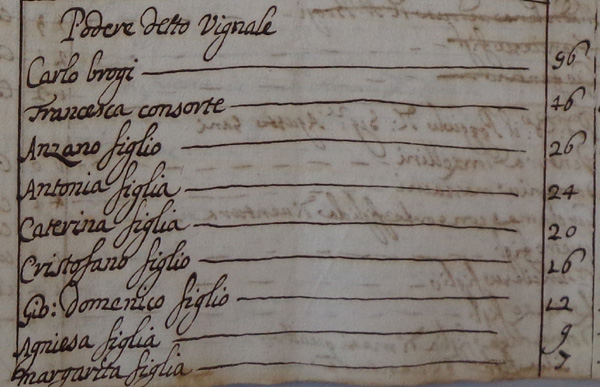 Podere detto Vignale
Carlo brogi 56
Francesca consorte 46
Anzano figlio 26
Antonia figlia 24
Caterina figlia 20
Cristofano figlio 16
Gio: Domenico figlio 12
Agniesa figlia 9
Margarita figlia 7